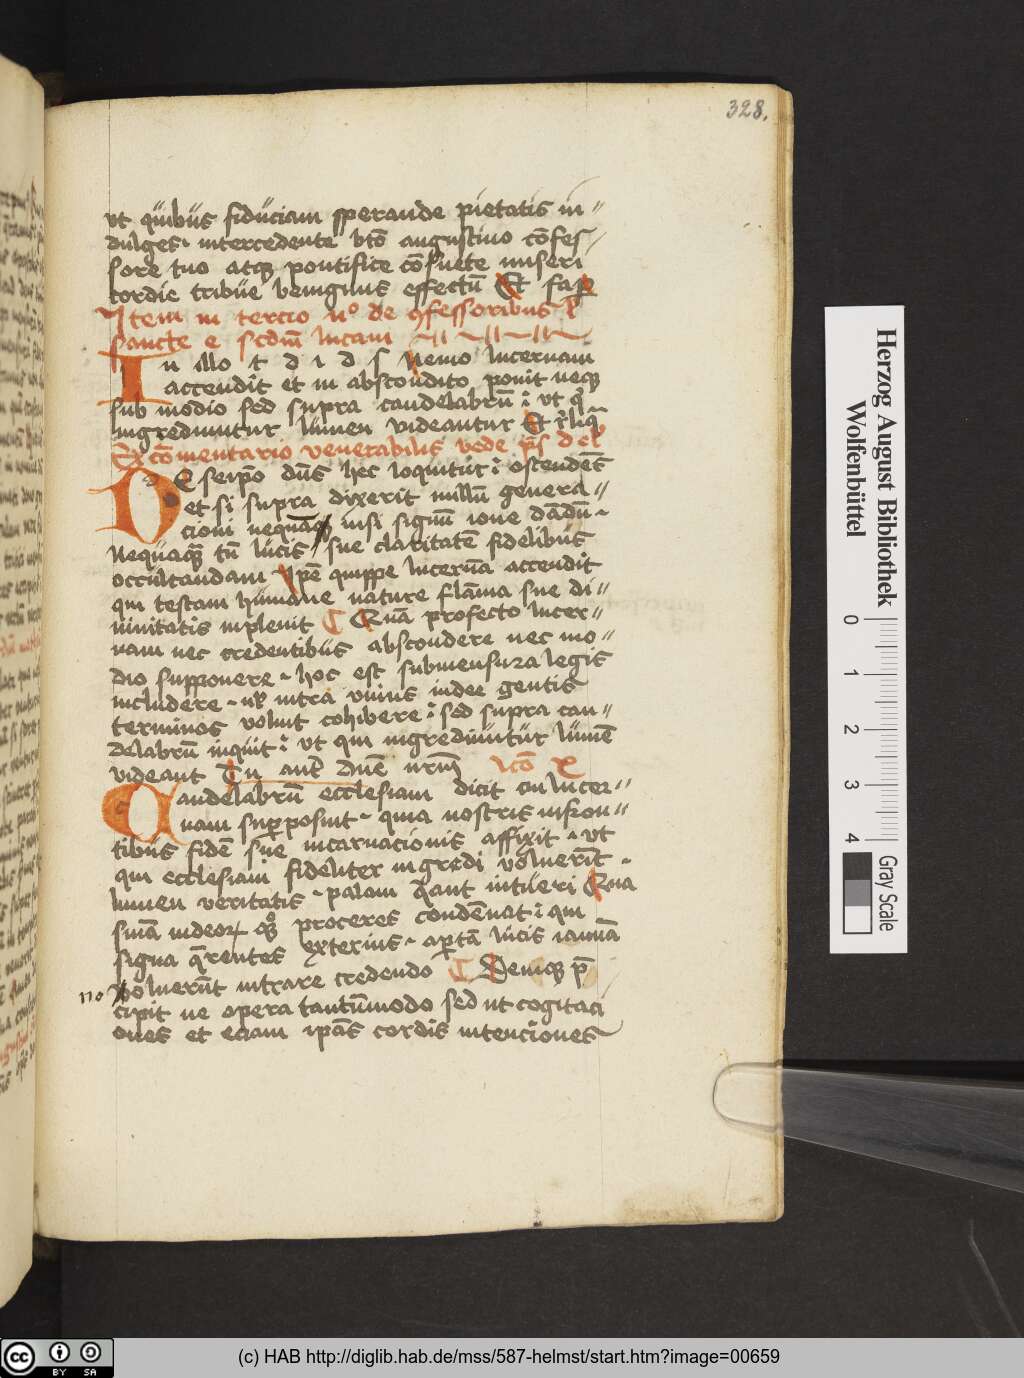 328.
vt quibus fiduciam sperande pietatis in
dulges intercedente bto augustino cōfes
sore tuo atqꝫ pontifice cōsuete miseri
cordie tribue benignus effectū Et fa
Item in tercio n° de ꝯfessoribus
sancte e scdm̄ lucam
In illo t d i d s Nemo lucernam
accendit et in abscondito ponit neqꝫ
sub modio sed supra candelabrū vt q̇
ingrediuntur lumen videantur Et rͥliqͣ
Ex cōmentario venerabilis bede pr̄s
DE seipo dn̄s hec loquitur ostendēs
et si supra dixerit nullū genera
cioni nequāqꝫ nisi signū ione dādū
Nequaqꝫ tn̄ lucis sue claritatē fidelibus
occultandam Ipē quippe lucernā accendit
qui testam humane nature flāma sue di
uinitatis inpleuit Quā profecto lucer
nam nec credentibus abscondere nec mo
dio supponere hoc est submensura legis
includere ul intra unius iudee gentis
terminos voluit cohibere sed supra can
delabrū inquit vt qui ingrediuntur lumē
videant Tu aut dn̄e nr̄m
Candelabrū ecclesiam dicit cui lucer
nam supposuit quia nostris in fron
tibus fidē sue incarnacionis affixit vt
qui ecclesiam fideliter ingredi voluerīt
lumen veritatis palam q̄ant intueri Qua
sm̄a iudeoꝝ qꝫ proceres condēnat qui
signa q̄rentes exterius aptā lucis ianuā
no voluerūt intrare credendo Deniqꝫ p̄
cipit ne opera tantūmodo sed ut cogitaci
ones et eciam ipās cordis intenciones
Herzog August Bibliothek
Wolfenbüttel
0 1 2 3 4
Gray Scale
CC BY SA
(c) HAB http://diglib.hab.de/mss/587-helmst/start.htm?image=00659